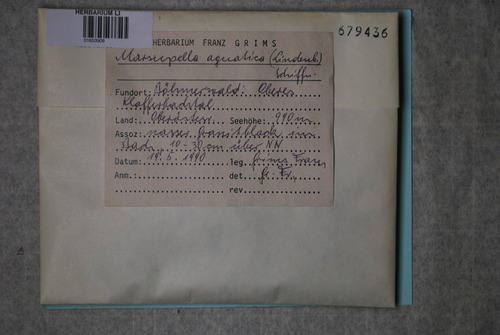 HERBARIUM LI
679436
HERBARIUM FRANZ GRIMS
Marsupella aquatica (Lindenb.)
Schiffn.
Fundort: Böhmerwald: Oberes
Klafferbachtal
Land: Oberösterr. Seehöhe: 990 m
Assoz: nasser Granitblock im
10-30 cm über NN
Datum: 19. 5. 1990 leg. Grims Franz
Anm.: det. Gr. Fr.
rev.